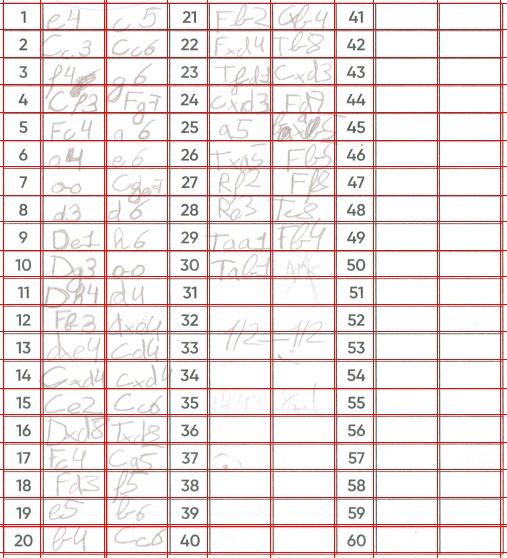 1 e4 c5 21 Fb2 Cxb4 41
2 Cc3 Cc6 22 Fxd4 Tb8 42
3 f4 g6 23 Cxd3 43
4 Cf3 Fg7 24 cxd3 Fd7 44
5 Fc4 a6 25 a5 45
6 a4 e6 26 Txa5 Fb5 46
7 o-o Cge7 27 Rf2 Ff8 47
8 d3 d6 28 Re3 Tc8 48
9 De1 h6 29 Taa1 Fb4 49
10 Dg3 o-o 30 Tab1 50
11 Dh4 d4 31 51
12 Fb3 dxe4 32 52
13 dxe4 Cd4 33 1/2 — 1/2 53
14 Cxd4 cxd4 34 54
15 Ce2 Cc6 35 55
16 Dxd8 Txd8 36 56
17 Fc4 Ca5 37 57
18 Fd3 f5 38 58
19 e5 b6 39 59
20 b4 Cc6 40 60